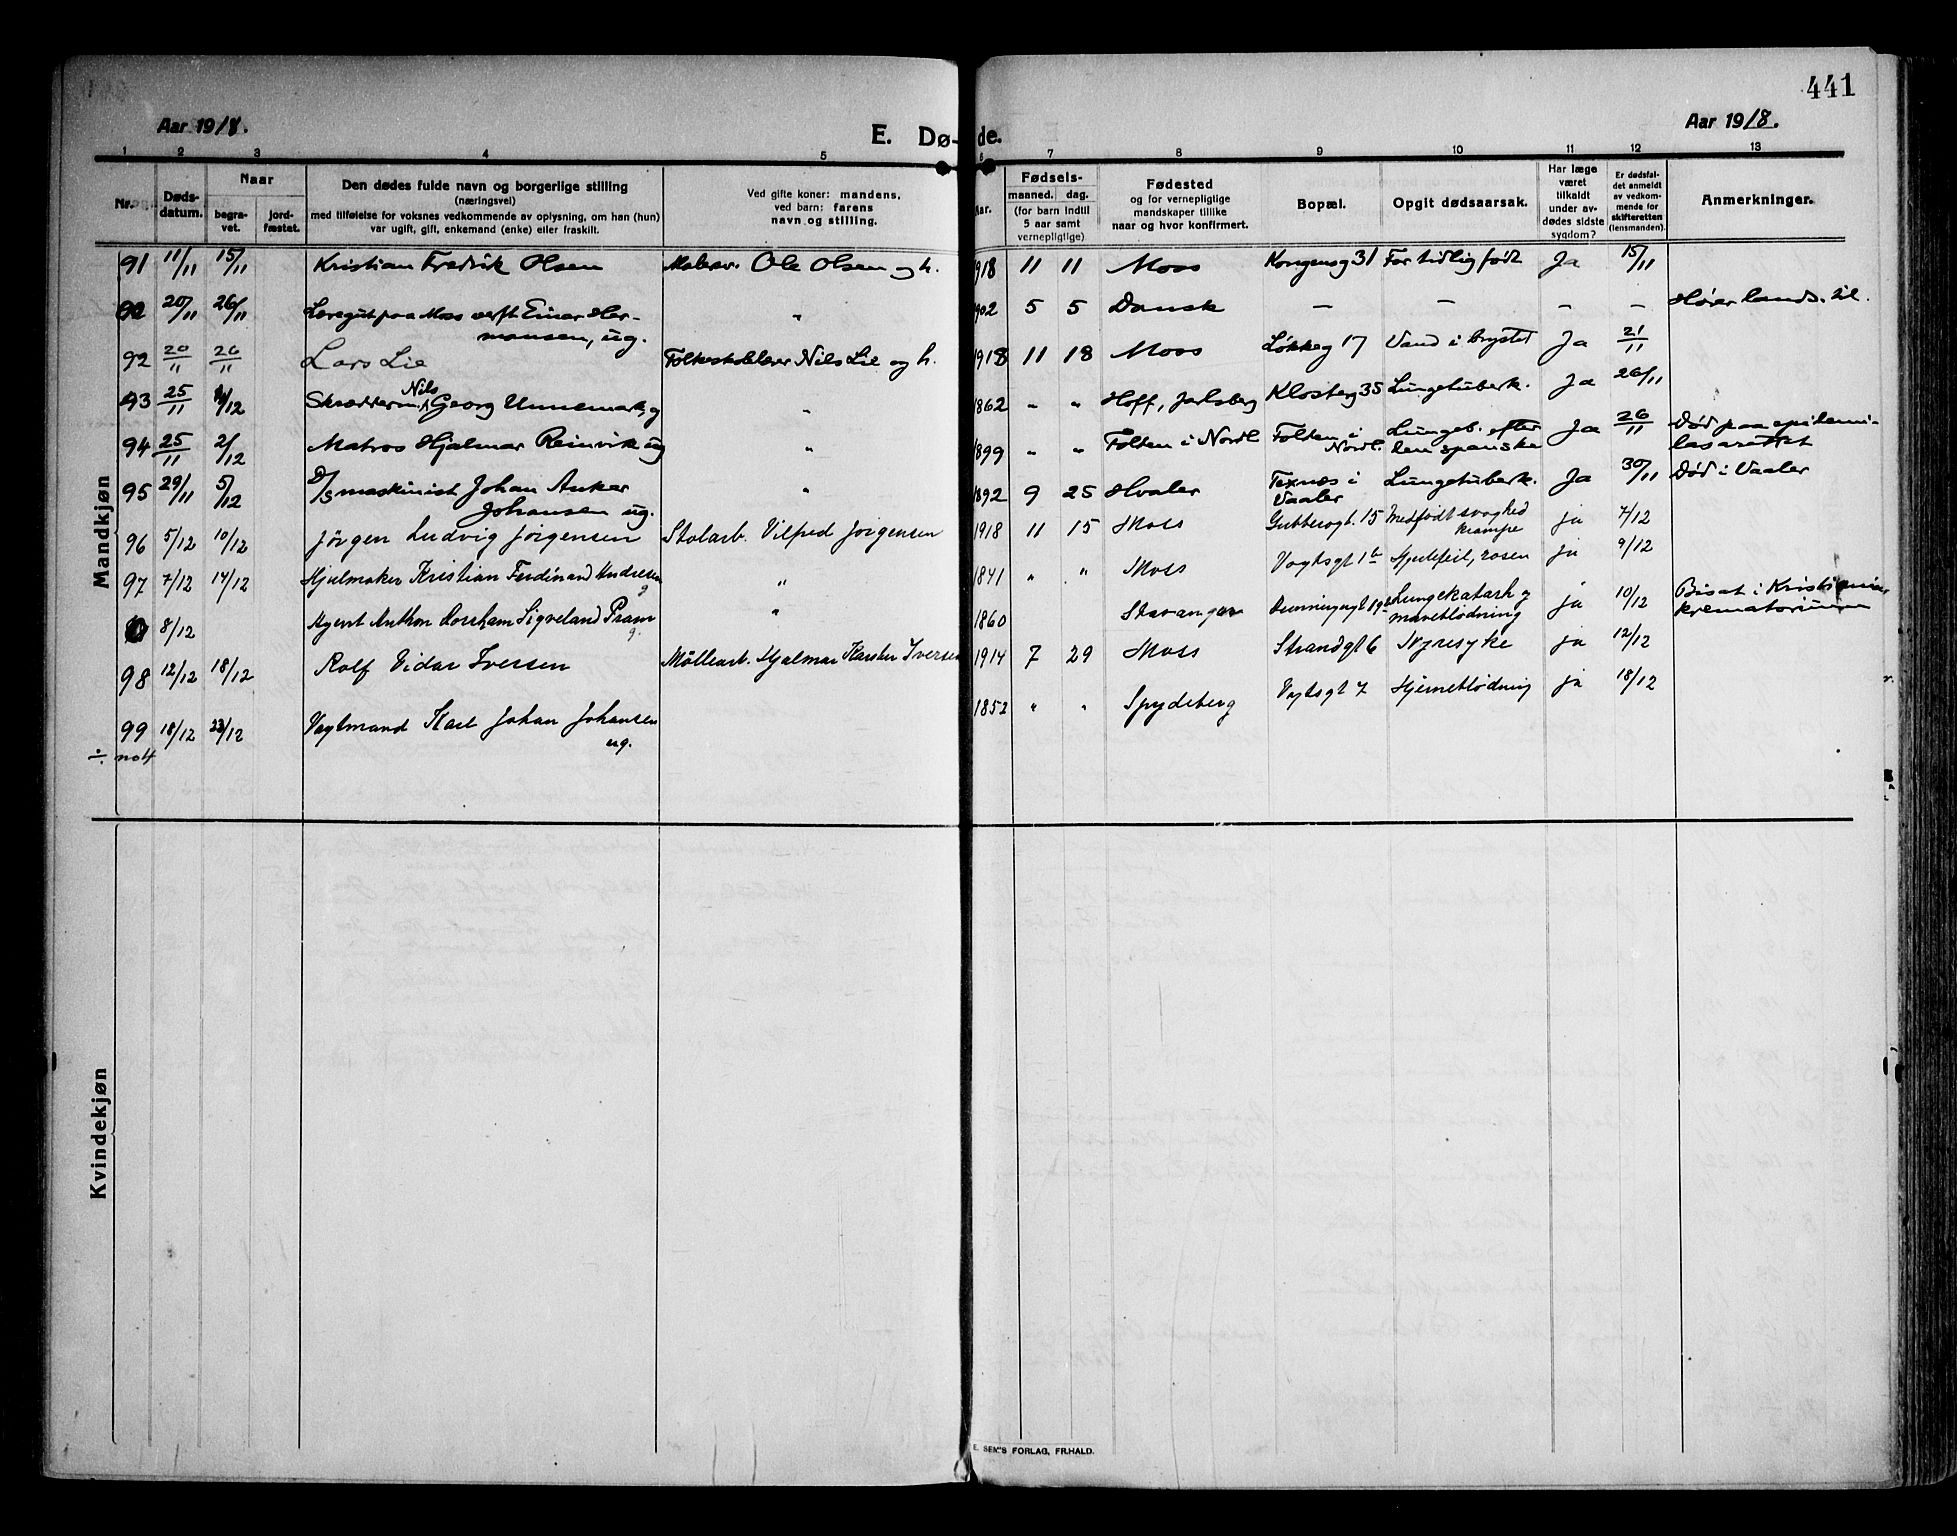 441
Aar 1918.
E. Dø-de.
Aar 1918.
1 2 3 4 5 6 7 8 9 10 11 12 13
Nr.
Døds-datum.
Naar
begra-vet.
jord-fæstet.
Den dødes fulde navn og borgerlige stilling
(næringsvei)
med tilføielse for voksnes vedkommende av oplysning, om han (hun)
var ugift, gift, enkemand (enke) eller fraskilt.
Ved gifte koner: mandens,
ved barn: farens
navn og stilling.
Aar.
Fødsels-
maaned. dag.
(for barn indtil
5 aar samt
vernepligtige)
Fødested
og for vernepligtige
mandskaper tillike
naar og hvor konfirmert.
Bopæl.
Opgit dødsaarsak.
Har læge
været
tilkaldt
under av-
dødes sidste
sygdom?
Er dødsfal-
det anmeldt
av vedkom-
mende for
skifteretten
(lensmanden).
Anmerkninger.
Mandkjøn
91 11/11 15/11 Kristian Fredrik Olsen Malersv. Ole Olsen og h. 1918 11 11 Moss Kongensg 31 For tidlig født Ja 15/11
20/11 26/11 Læregut paa Moss verft Einar Her-
mansen, ug. " 1902 5 5 Dansk — — — — Hører lands. til.
92 20/11 26/11 Lars Lie Folkeskolelærer Nils Lie og h. 1918 11 18 Moss Løkkeg 17 Vand i brystet Ja 21/11
93 25/11 /12 Skræddderm. Nils Georg Unnemark, g " 1862 " " Hoff, Jarlsberg Klosterg 35 Lungetuberk. Ja 26/11
94 25/11 2/12 Matros Hjalmar Reinvik ug " 1899 " " Folten i Nordl. Folten i Nordl. Lungeb. efter
den spanske Ja 26/11 Død paa epidemi-
lasarettet
95 29/11 5/12 D/S maskinist Johan Anker
Johansen ug. " 1892 9 25 Hvaler Texnæs i
Vaaler Lungetuberk. Ja 30/11 Død i Vaaler
96 5/12 10/12 Jørgen Ludvig Jørgensen Stolarb. Vilfred Jørgensen 1918 11 15 Moss Gubberogt. 15 Medfødt svaghed
krampe ja 7/12
97 7/12 14/12 Hjulmaker Kristian Ferdinand Andresen
g " 1841 " " Moss Vogtsgt 1b Hjertefeil, rosen ja 9/12
8/12 Agent Anthon Sigveland Pram
g. " 1860 Stavanger Lungekatarh og
maveblødning ja 10/12 Bisat i Kristiania
krematorium
98 12/12 18/12 Rolf Vidar Iversen Møllearb. Hjalmar Karsten Iversen 1914 7 29 Moss Strandgt 6 Nyresyke ja 12/12
99 18/12 23/12 Vagtmand Karl Johan Johansen
ug. 1852 " " Spydeberg Vogtsgt 7 Hjerneblødning ja 18/12
÷ no 4
Kvindekjøn
E. SEM'S FORLAG, FR.HALD.